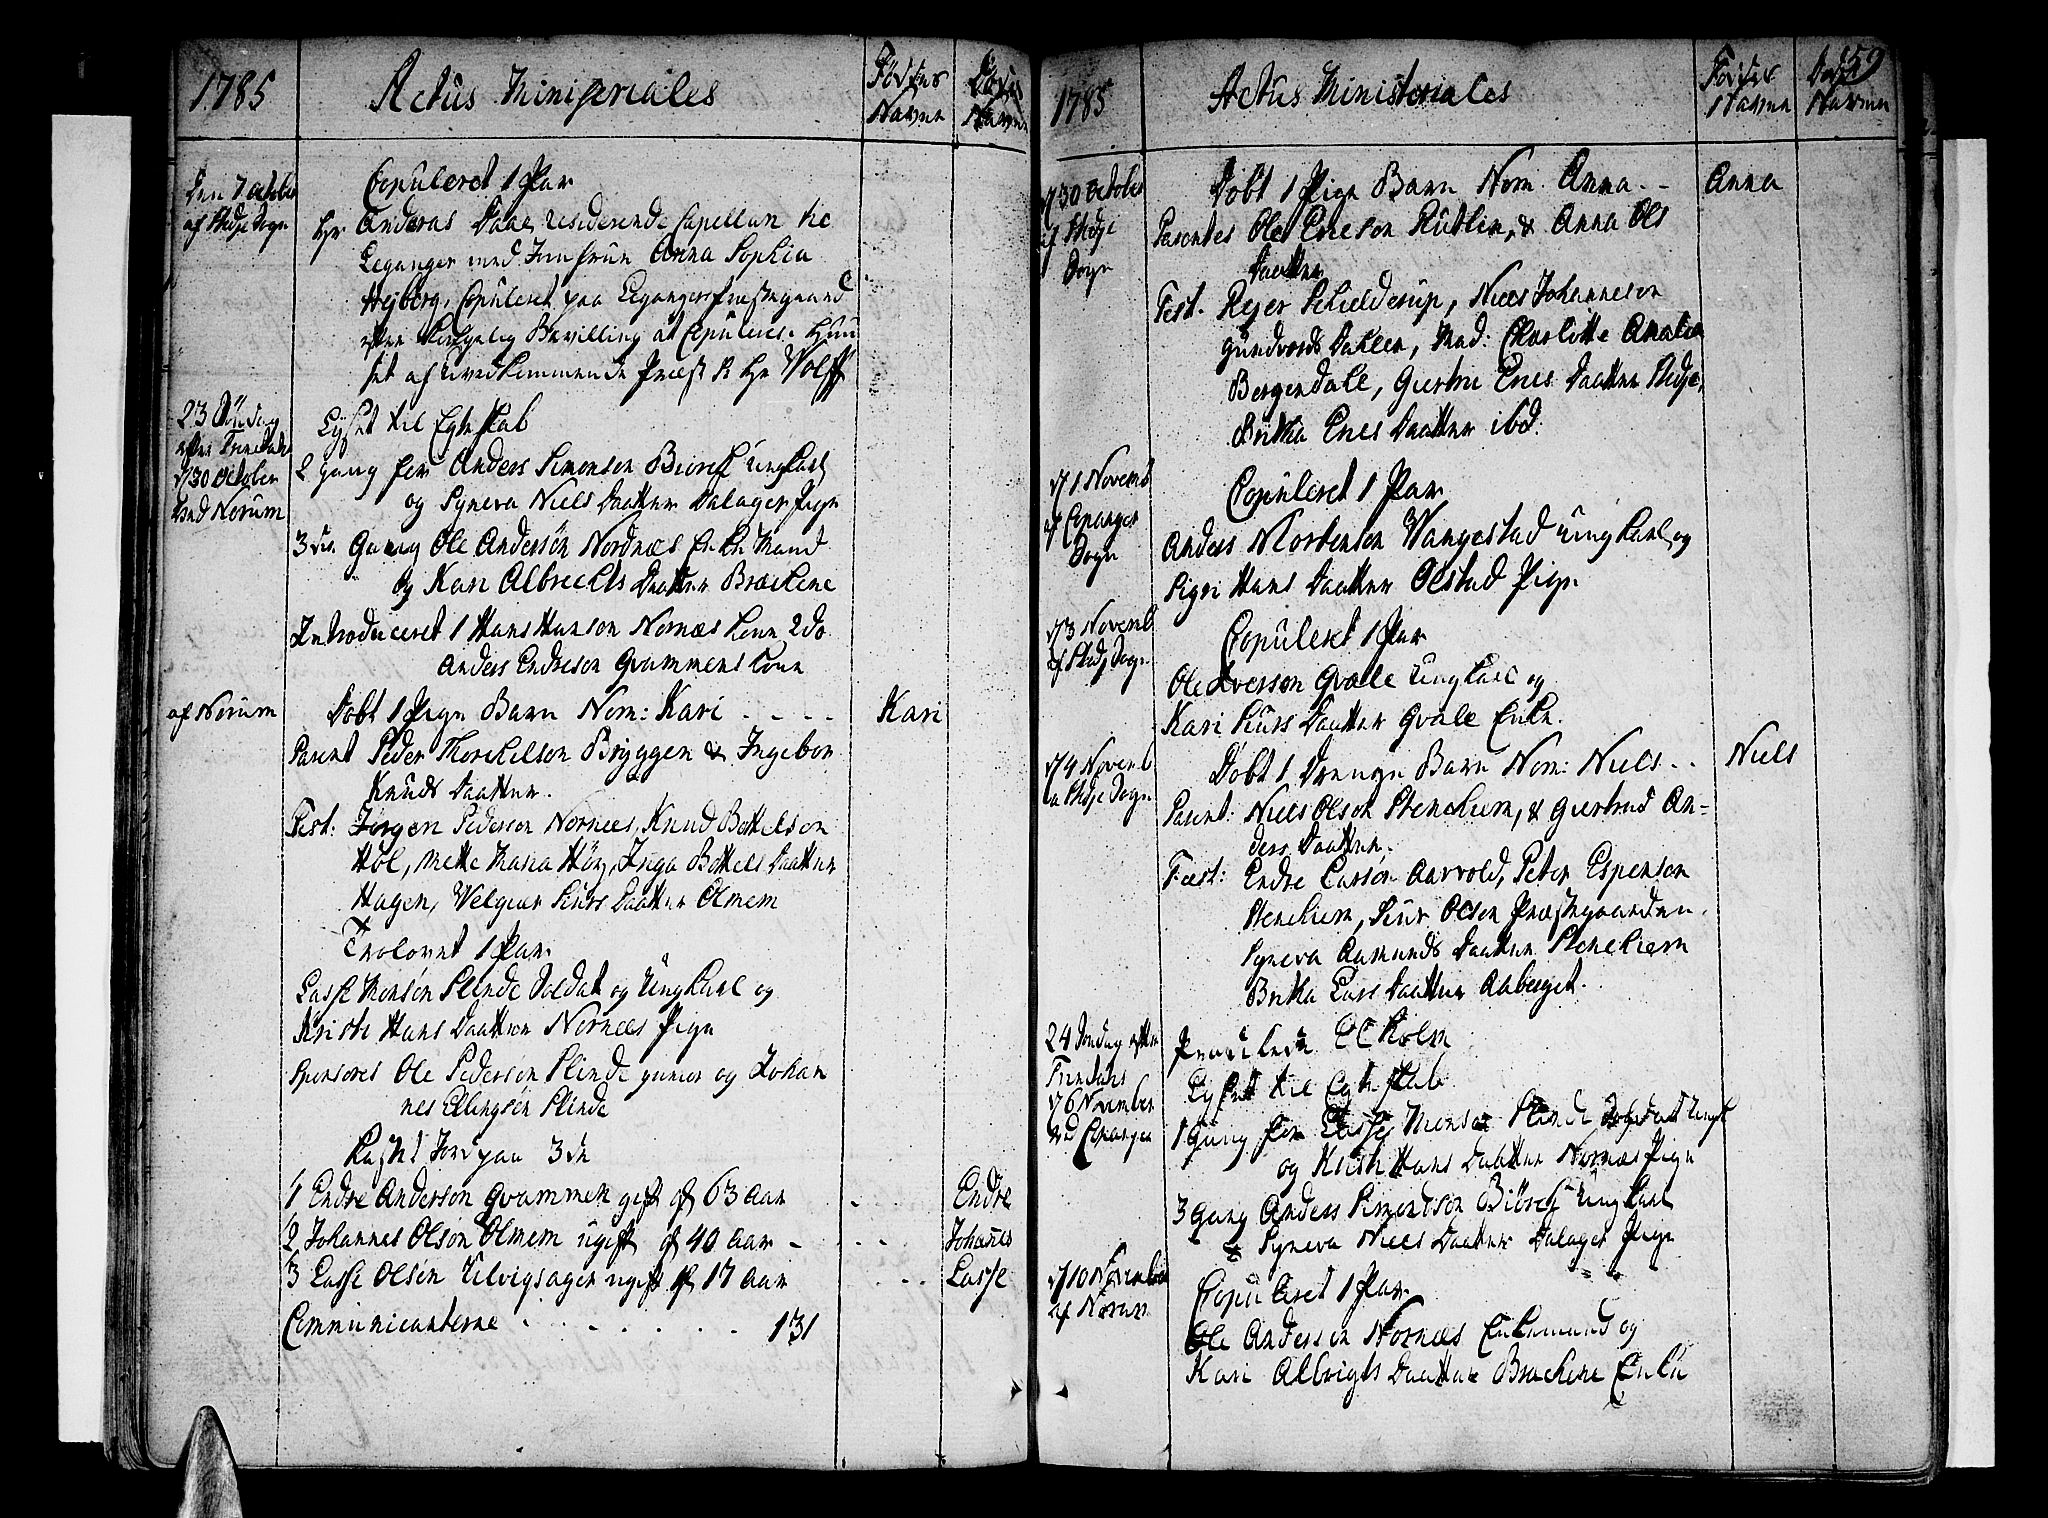 1785
Actus Ministeriales
Fødtes
Navne
Dødes
Navne
Den 7 octobr
af Stedje Sogn
Copuleret 1 Par
Hr Anderas Daae residerende Capellan til
Leganger med Jomfruen Anna Sophia
Hejberg, Copuleret paa Leganger Præstegaard
efter Kongelig Bevilling at Copuleres i Huu
set af uvedkommende Præst S: Hr Wolff
23 Søndag
efter Trinitatis
d 30 October
ved Norum
Lyst til Egteskab
2 gang for Anders Simonson Biørck ungkarl
og Syneva Niels Daatter Dalager Pige
3die Gang Ole Andersøn Nordnæs Enke Mand
og Kari Albrechts Daatter Bræchene
Introduceret 1 Hans Hanson Nornæs kone 2do
Anders Endreson Gvammens kone
af Norum
Døbt 1 Pige Barn Nom: Kari
Kari
Parent Peder Thorchelson Bryggen & Ingebor
Knuds Daatter.
Test: Jørgen Pederson Nornæs, Knud Bottelson
Hol, Mette Maria Hør, Inga Bottels Daatter
Hagen, Velgier Siurs Daatter Olmem
Trolovet 1 Par
Lasse Monsøn Slinde Soldat og Ungkarl og
Kristi Hans Daatter Nornæs Pige
Sponsores Ole Pedersøn Slinde junior og Johan
nes Ellingsøn Slinde
Kastet Jord paa 3de
1 Endre Anderson Gvammen gift af 63 aar
Endre
2 Johannes Olsøn Olmem ugift af 40 aar
Johanes
3 Lasse Olsøn Tilvigsagen ugift af 17 aar
Lasse
Communicanterne 131
1785
Actus Ministeriales
Fødtes
Navne
Døde
Navne
159
d 30 october
af Stedje
Sogn
Døbt 1 Pige Barn Nom. Anna
Anna
Parentes Ole Ericson Rutlin, & Anna Ols
Daatter
Test. Rejer Schielderup, Niels Johanneson
Gundvords Dahlen, Mad: Charlotte Amalia
Bergendale, Giertru Erics Daatter Stedje,
Britha Erics Daatter ibd.
d 1 Novemb
af Copanger
Sogn
Copuleret 1 Par
Anders Mortenson Wangestad ungkarl og
Sigri Hans Daatter Olstad Pige
d 3 Novemb
af Stedj Sogn
Copuleret 1 Par
Ole Iverson Gvale Ungkarl og
Kari Siurs Daatter Gvale Enke.
d 4 Novemb
a Stedje Sogn
Døbt 1 Drenge Barn Nom: Niels
Niels
Parent: Niels Olson Stenehiem, & Giertrud An-
ders Daatter.
Test: Endre Larsøn Aarvold, Peter Espenson
Stenehiem, Siur Olson Præstegaarden.
Syneva Aamunds Daatter Stenehiem
Britha Lars Daatter Aaberget.
24 Søndag efter
Trinitatis
d 6 November
ved Copanger
Holm
Lyst til Egteskab
1 Gang for Lasse Monson Slinde Soldat Ungk
og Kristi Hans Daatter Nornæs Pige
3 gang Anders Simonsson Biørck Ungkarl
& Syneva Niels Daatter Dalager Pige
d 10 November
af Norum
Copuleret 1 Par.
Ole Anderson Nornæs Enkemand og
Kari Albrigts Daatter Brachene Enke